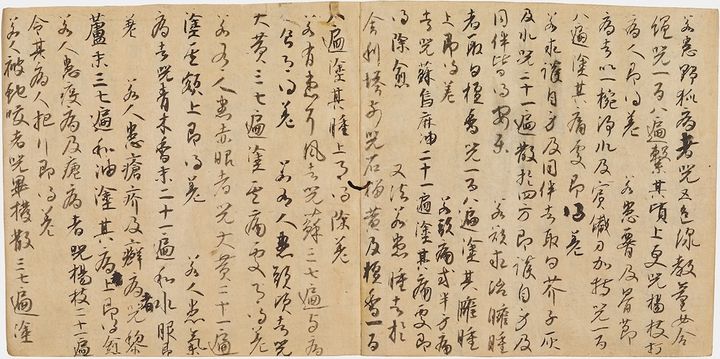 若患野狐病者咒五色線教童女合
繩咒一百八遍繫其項上更咒楊枝打
病人即得差　若患及骨節
病者以一椀淨水及寳鐵刀加持咒一百
八遍塗其痛處即得差
若求護自身及同伴者取白芥子灰
及水咒二十一遍散於四方即護自身及
同伴皆得安樂　若欲求治癰腫
者取白檀香咒一百八遍塗其癰腫
上即得差　若頭痛或半身痛
者咒蘇烏麻油二十一遍塗其痛處即
得除愈　又法若患腫者於
舍利塔前咒石黃及檀香一百
八遍塗其腫上得除差
若有患風者咒蘇三七遍与病
人得差　若有人患頭項者咒
大黃三七遍塗其痛處得差
若有人患赤眼者咒大黃二十一遍
塗其額上即得差　若人患氣
病者咒青木香末二十一遍和水服即
差　若人患瘡疥及癬病者咒黎
蘆末三七遍和油塗其病上即得差
若人患疫病及瘧病者咒楊枝二十一遍
令其病人把行即得差
若人被蛇咬者咒畢撥散三七遍塗